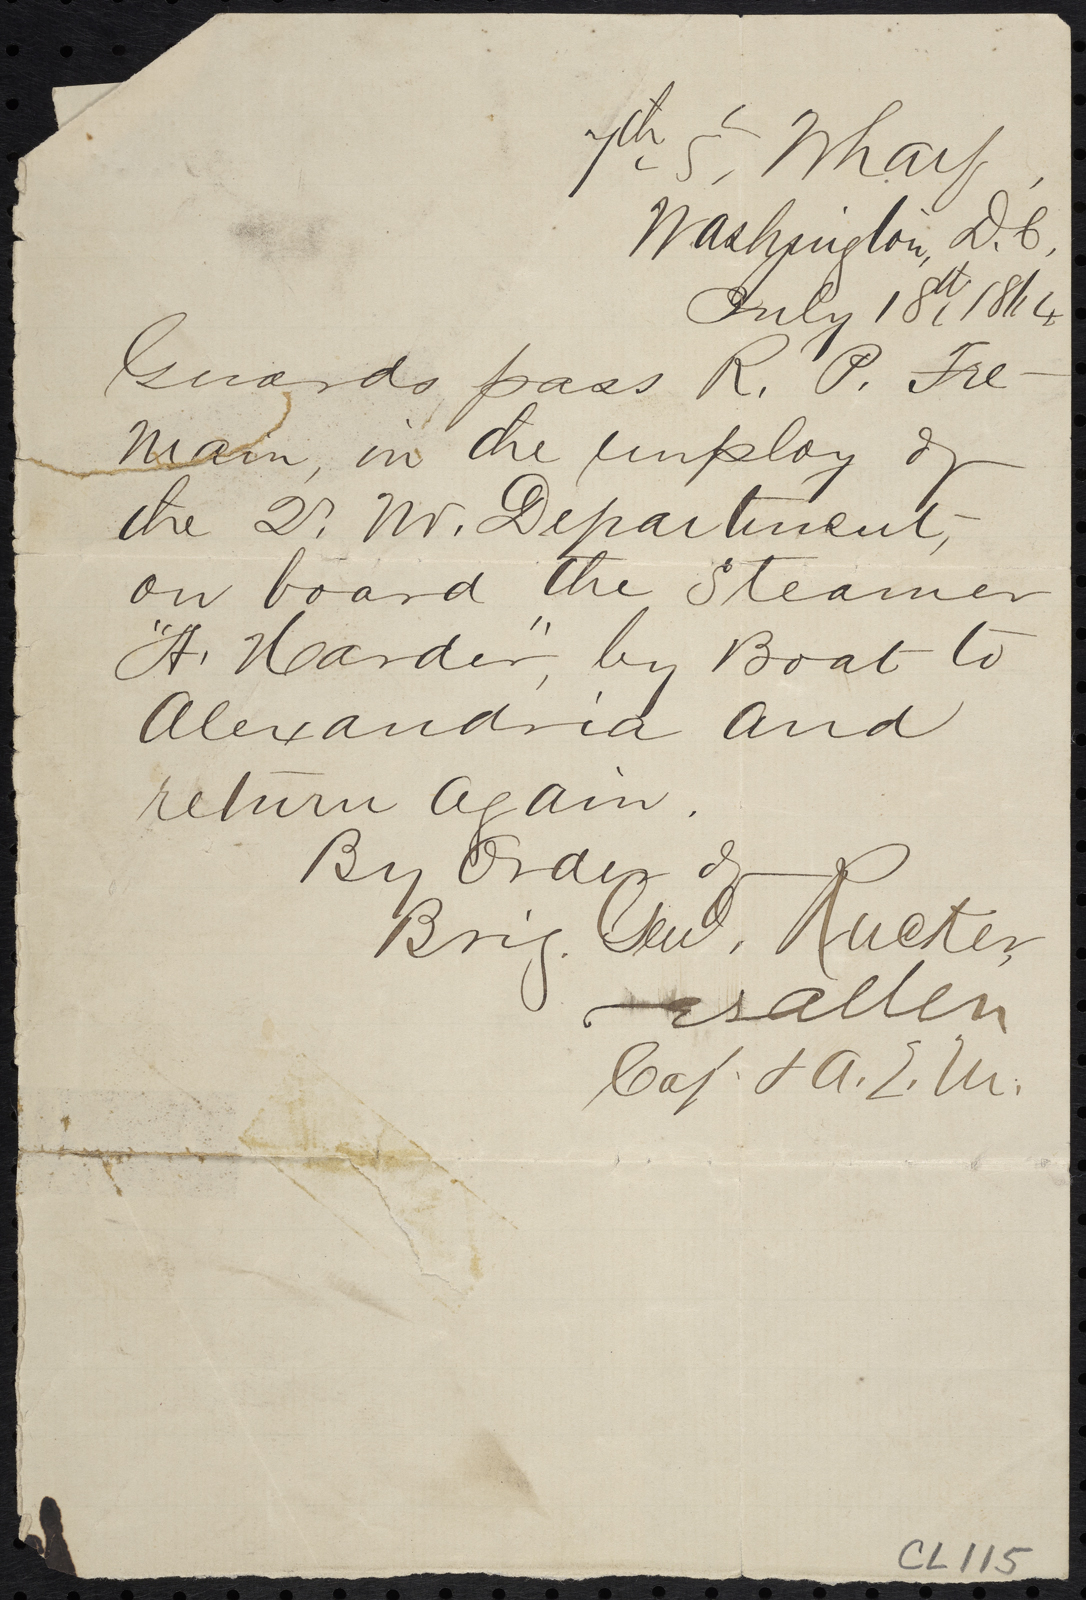 7th St, Wharf,
Washington, D.C.
July 18th, 1864
Guards pass R. P. Tre-
main, in the employ of
the Q. M. Department,
on board the Steamer
"A. Harder", by Boat to
Alexandria and
return again.
By Order of
Brig. Genl. Rucker,
Allen
Cap. & A. Q. M.
CL115